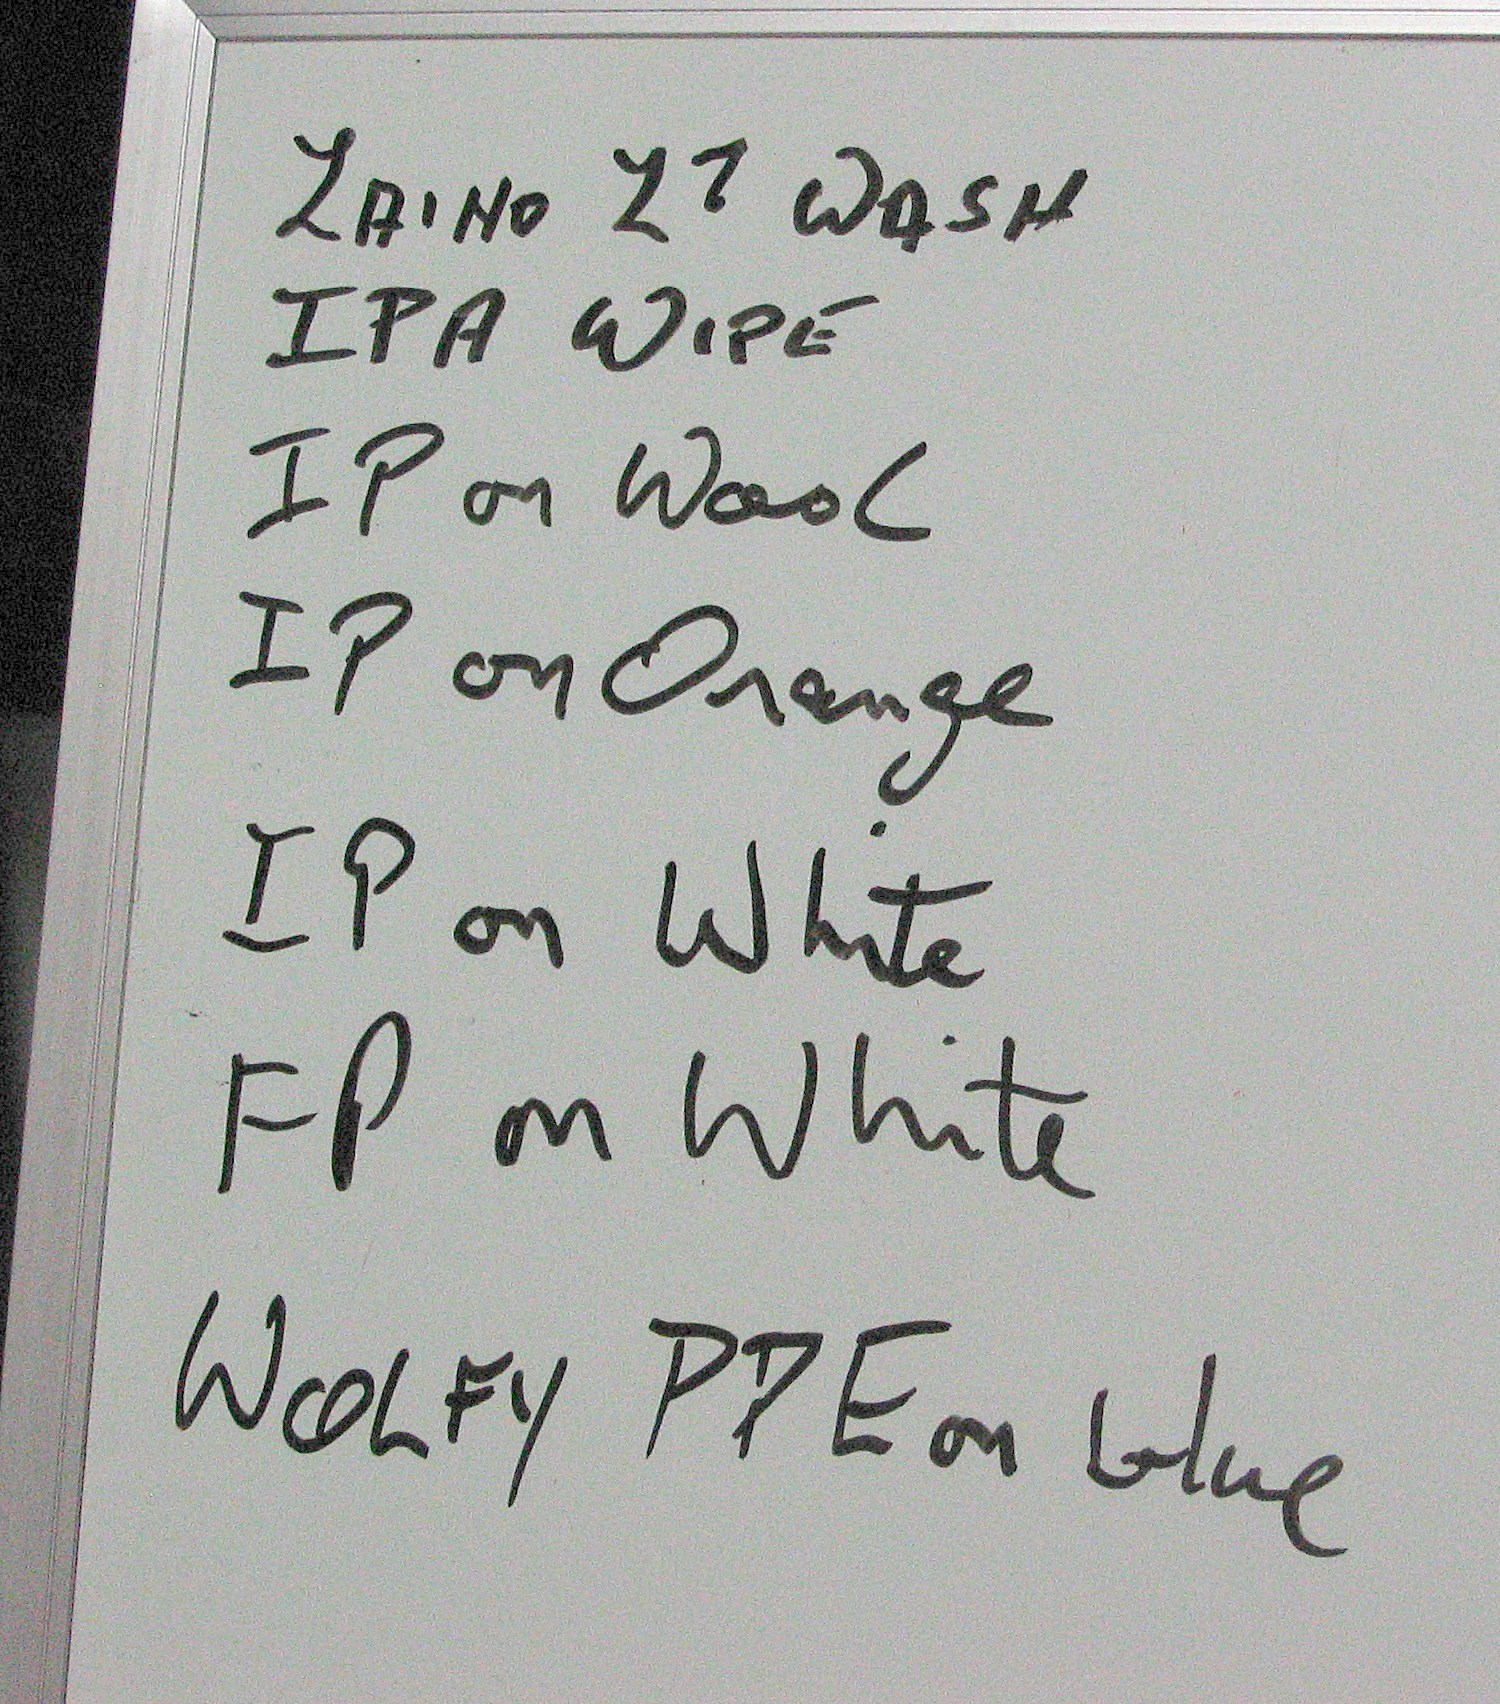 ZAINO Z7 WASH
IPA WIPE
IP on Wool
IP on Orange
IP on White
FP on White
WOOLFY PPE on blue